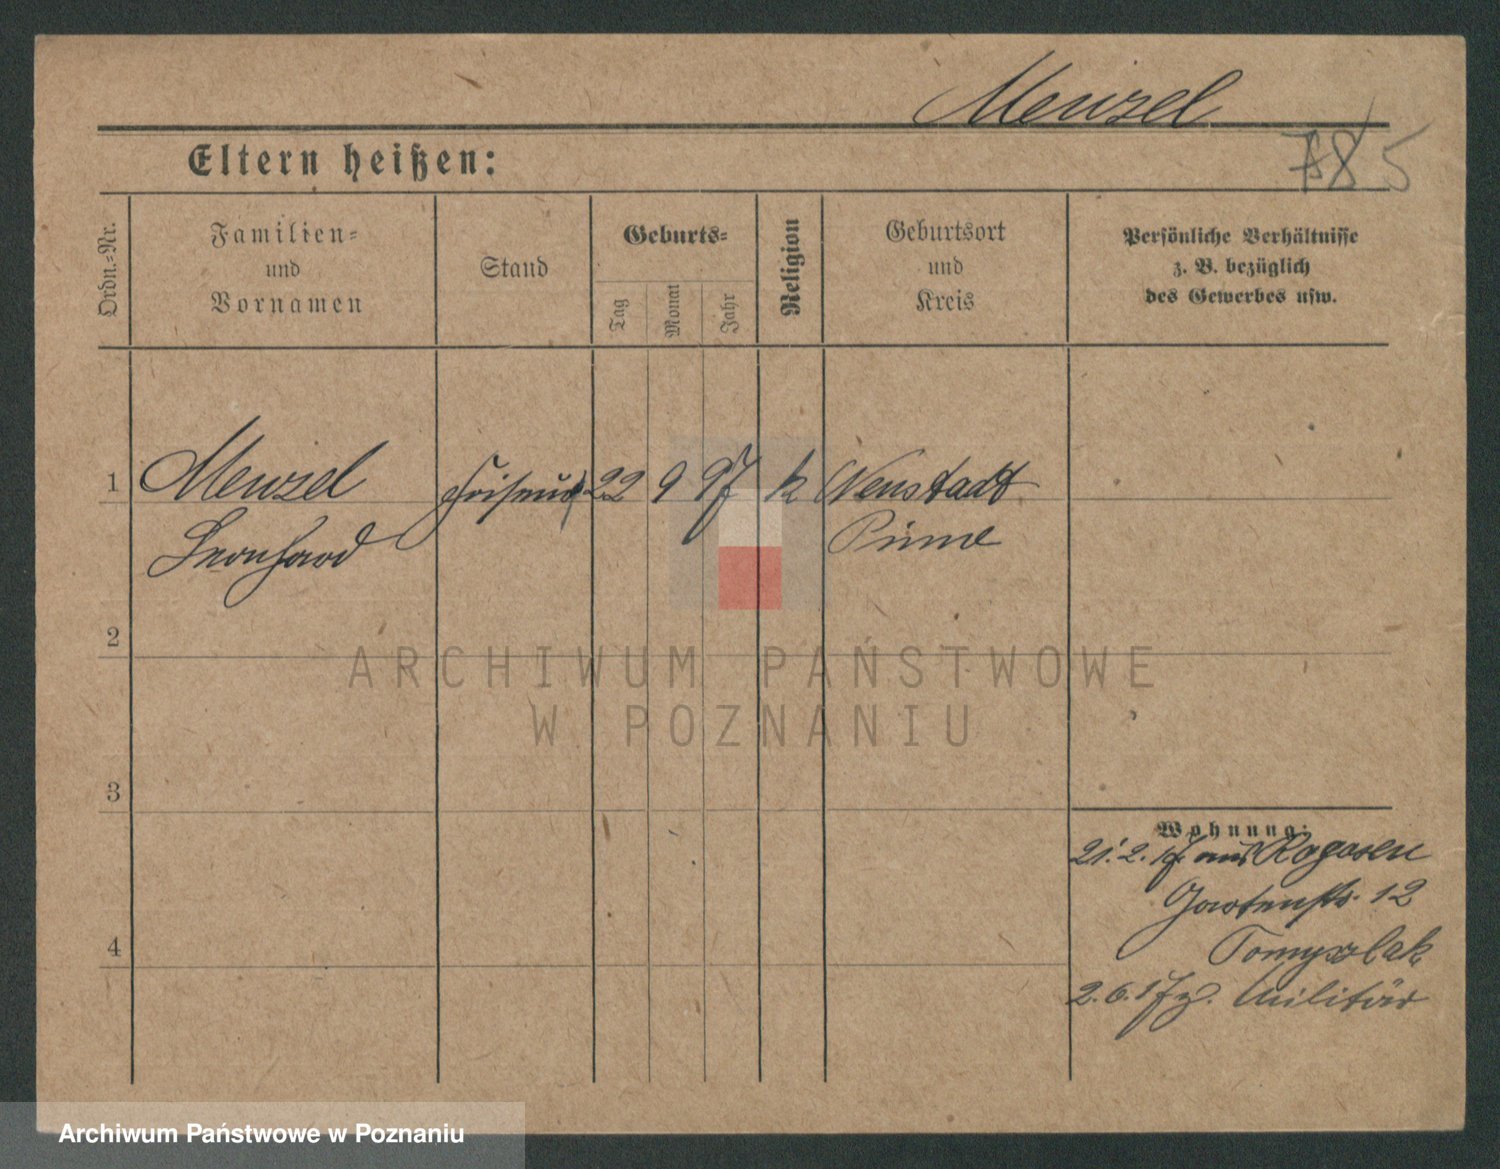 Menzel
Eltern heißen:
785
Ordn.-Nr.
Familien-
und
Vornamen
Stand
Geburts-
Tag
Monat
Jahr
Religion
Geburtsort
und
Kreis
Persönliche Verhältnisse
z. B. bezüglich
des Gewerbes usw.
1
Menzel
Leonhard
Friseur
22
9
97
k
Neustadt
Pinne
2
3
4
Wohnung:
21.2.17. aus Rogasen
Gartenstr. 12
Tomyszlak
2.6.17 z. Militär
ARCHIWUM PAŃSTWOWE
W POZNANIU
Archiwum Państwowe w Poznaniu